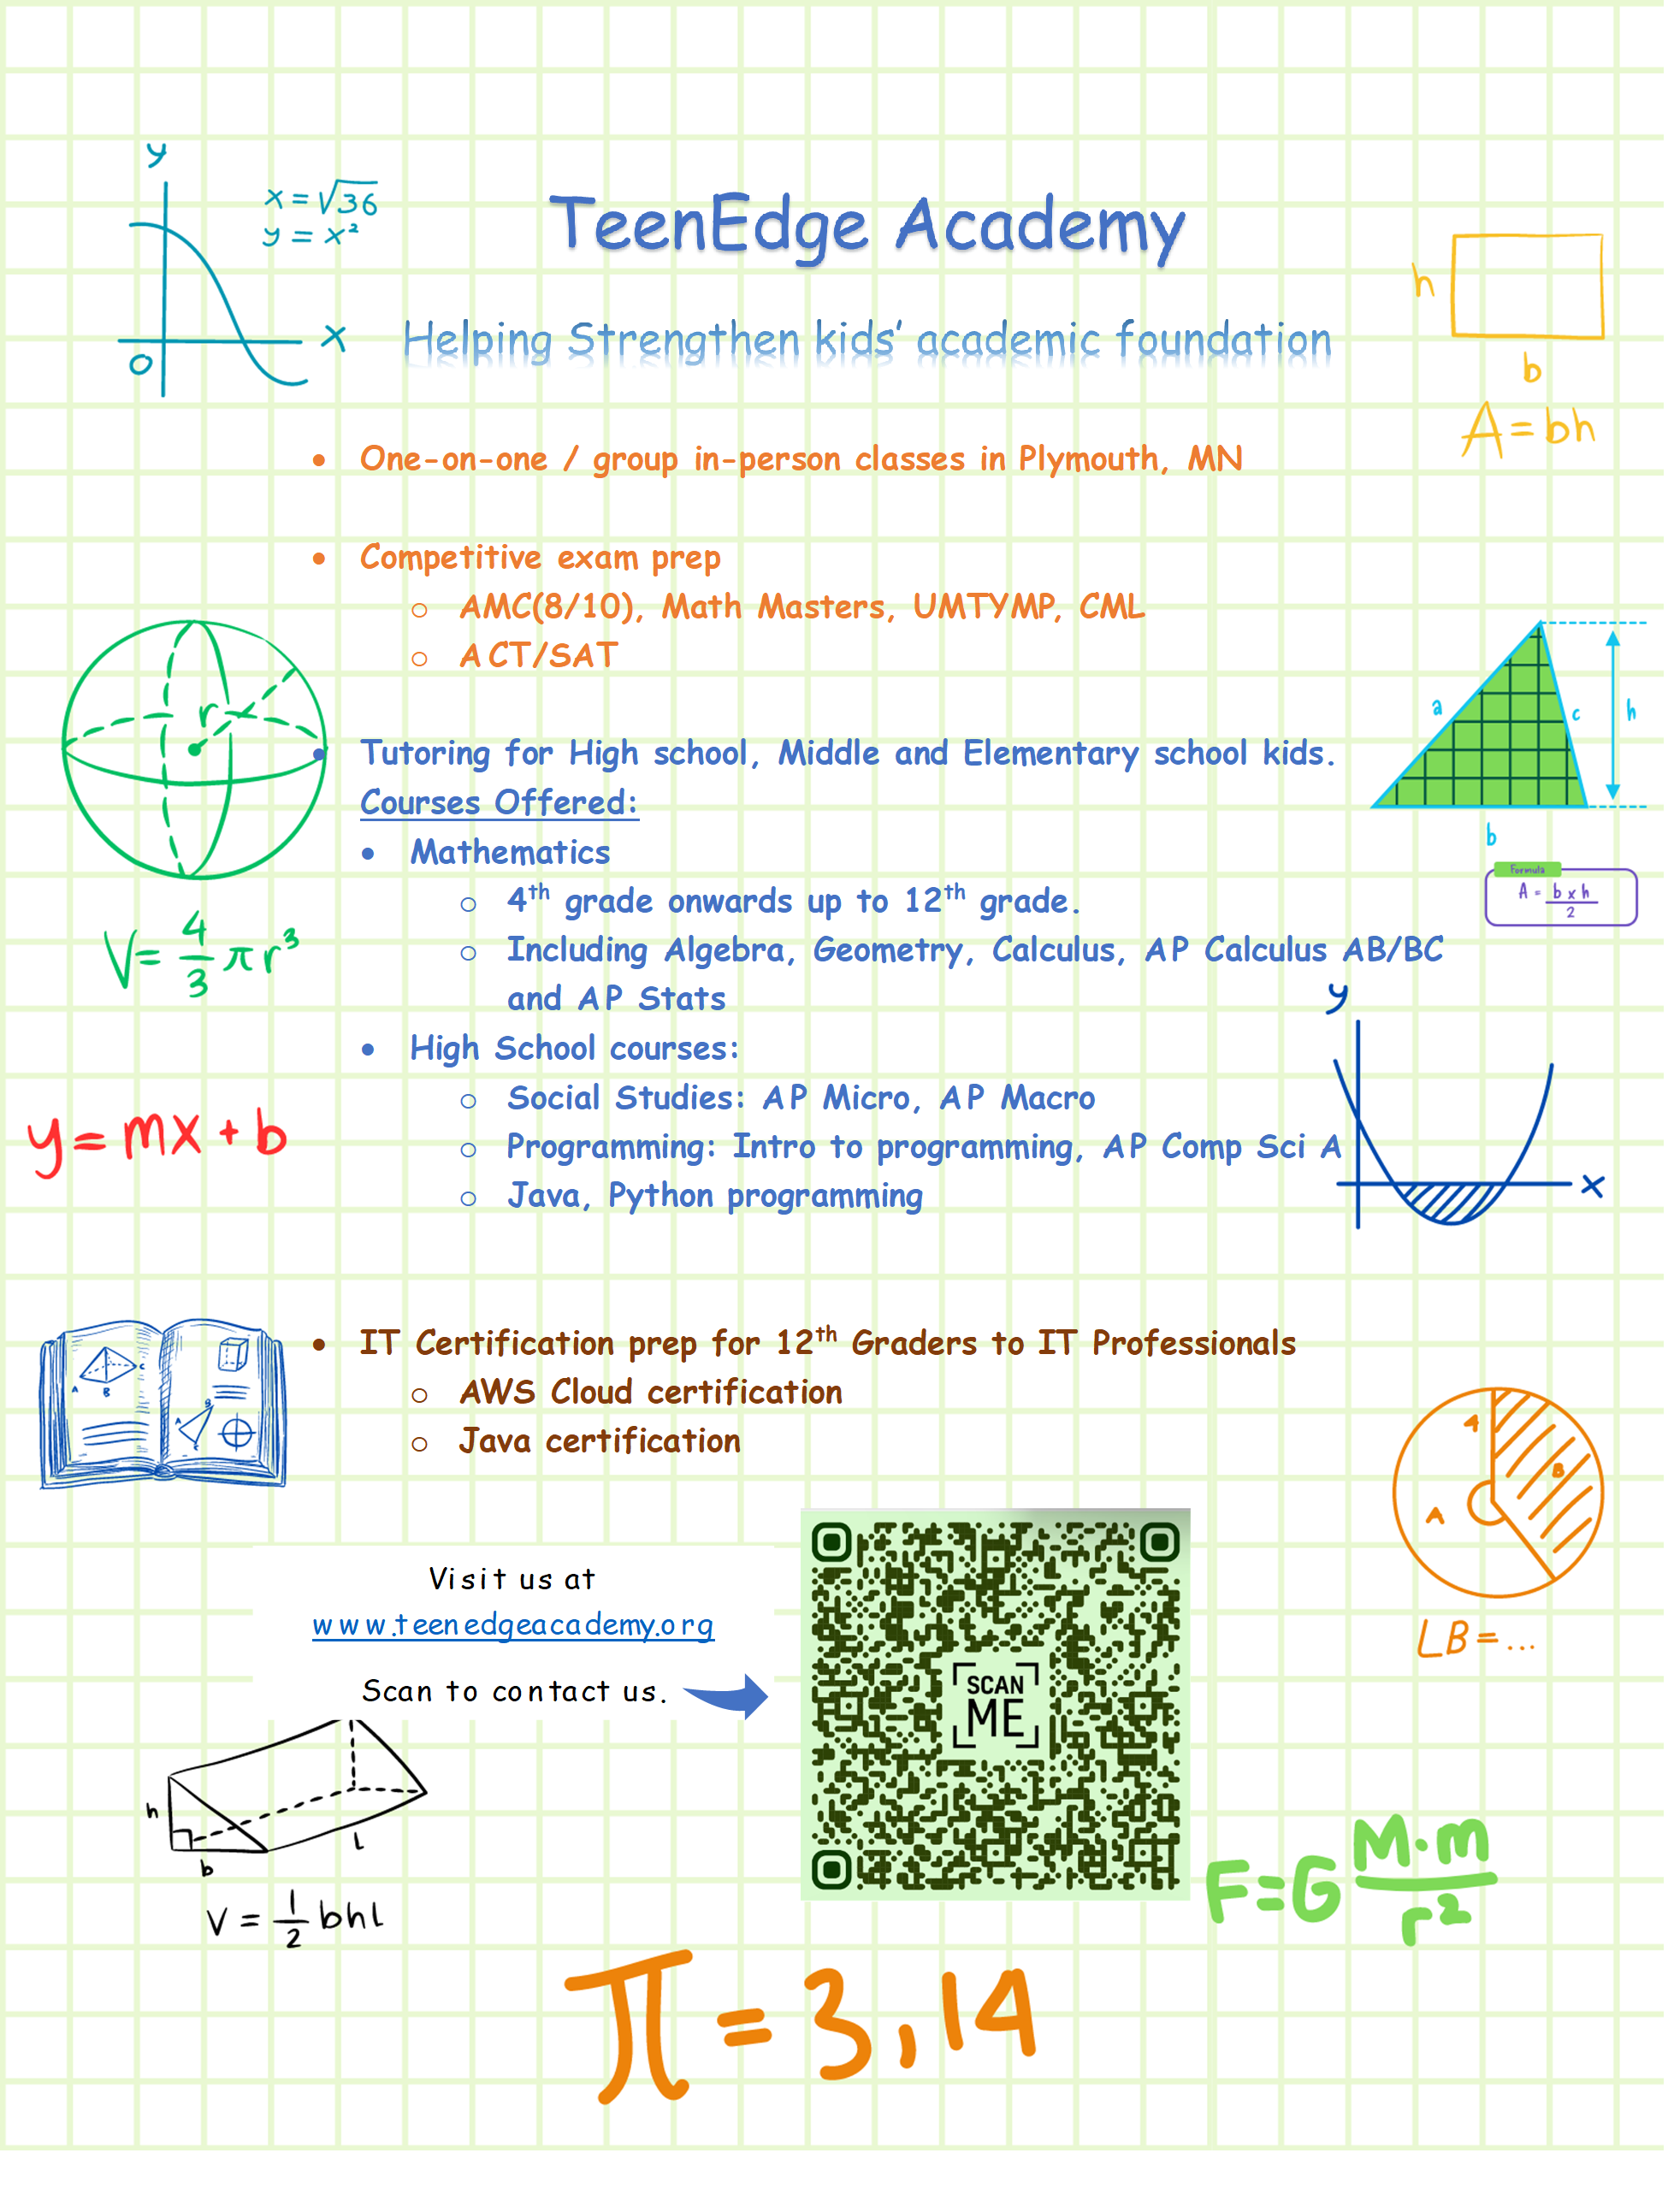 y
x = √36
y = x²
x
0
TeenEdge Academy
Helping Strengthen kids’ academic foundation
h
b
A = bh
• One-on-one / group in-person classes in Plymouth, MN
• Competitive exam prep
o AMC(8/10), Math Masters, UMTYMP, CML
o ACT/SAT
r
a
c
h
b
Formula
A = b x h / 2
• Tutoring for High school, Middle and Elementary school kids.
Courses Offered:
• Mathematics
o 4th grade onwards up to 12th grade.
o Including Algebra, Geometry, Calculus, AP Calculus AB/BC
and AP Stats
• High School courses:
o Social Studies: AP Micro, AP Macro
o Programming: Intro to programming, AP Comp Sci A
o Java, Python programming
V = 4/3 πr³
y = mx + b
y
x
• IT Certification prep for 12th Graders to IT Professionals
o AWS Cloud certification
o Java certification
A
B
C
A
B
C
4
B
A
LB = ...
Visit us at
www.teenedgeacademy.org
Scan to contact us.
SCAN
ME
h
b
L
V = 1/2 bhl
F = G M·m / r²
π = 3,14